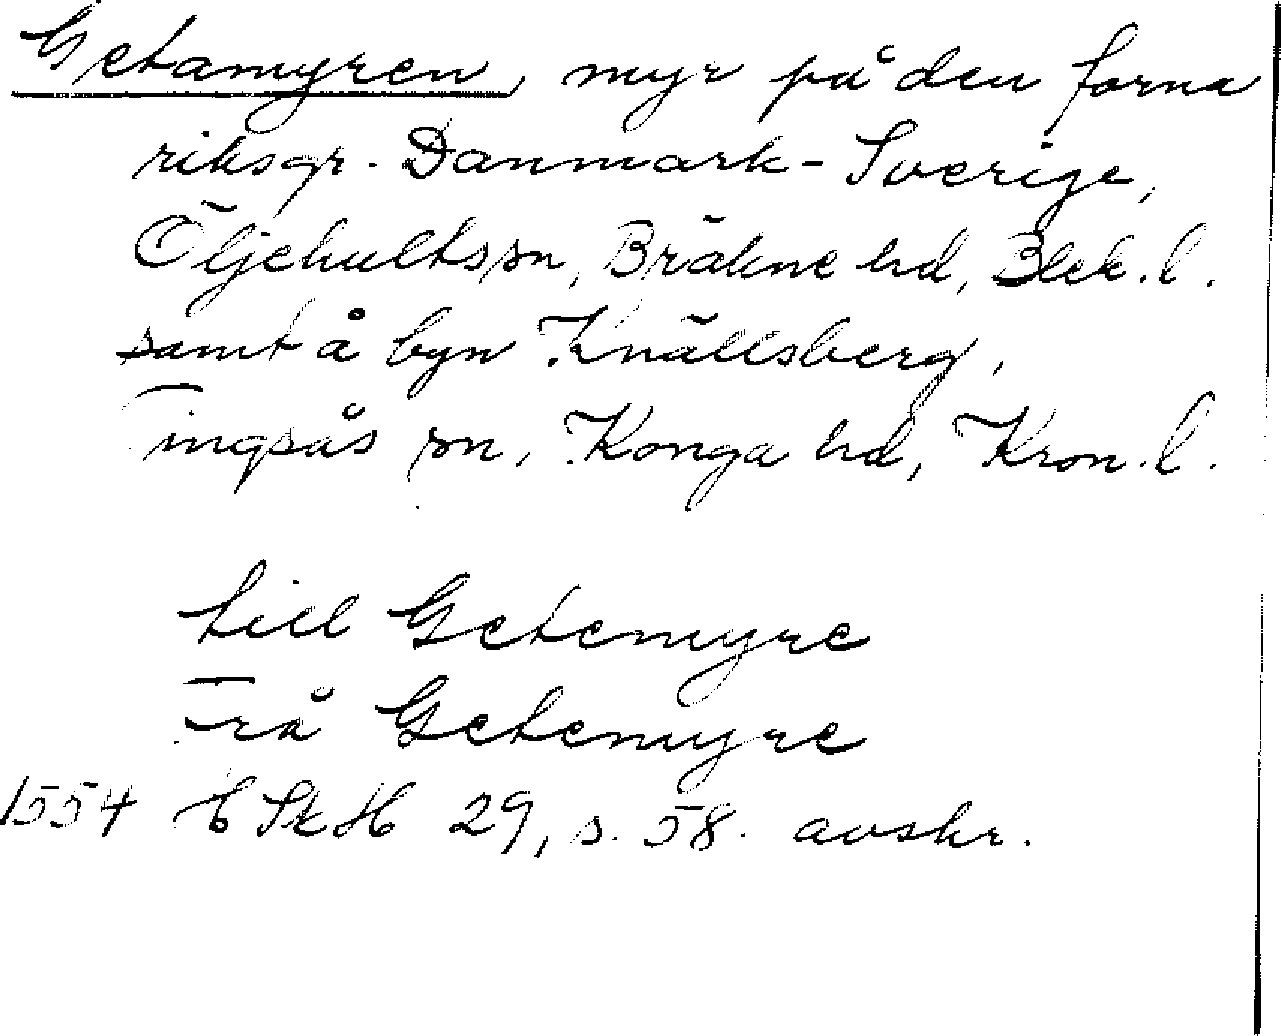 Getamyren, myr på den forna
riksgr. Danmark-Sverige,
Öljehults sn, Bräkne hd, Blek. l.
samt å byn Knällsberg,
Tingsås sn, Konga hd, Kron. l.
till Getemyre
Frå Getemyre
1554 ESkH 29, s. 58. avskr.